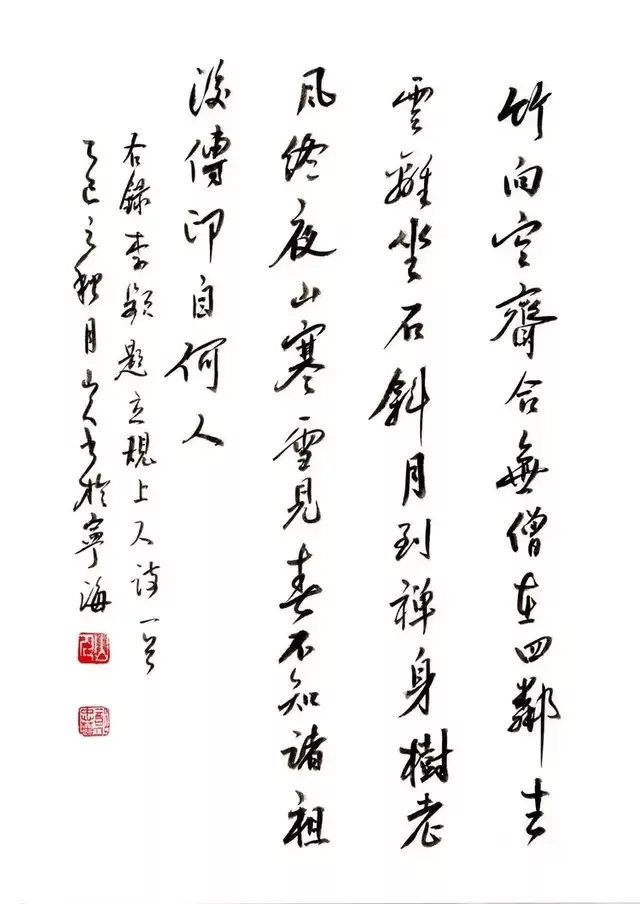 竹向空齋合無僧在四鄰去
雲離坐石斜月到禅身樹老
风終夜山寒雪見春不知諸祖
後傳印自何人
右錄李頻題立規上人詩一首
乙巳之秋月山人書於寧海